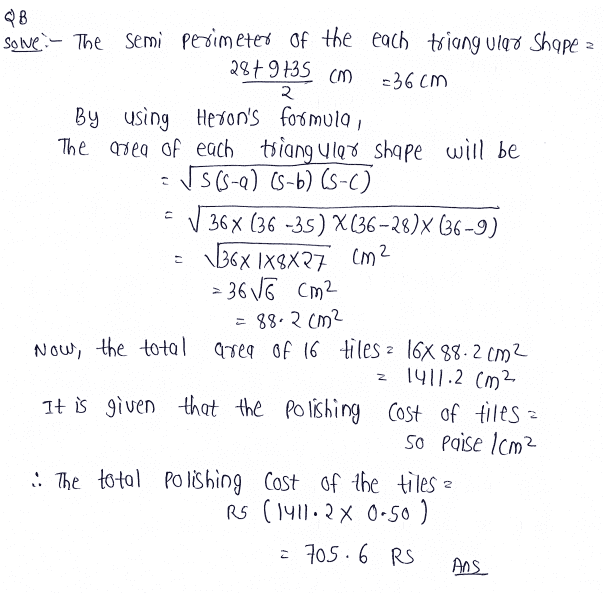 Q8
Solve:- The semi perimeter of the each triangular shape =
28+9+35 / 2 cm = 36 cm
By using Heron's formula,
The area of each triangular shape will be
= √S(S-a) (S-b) (S-c)
= √36 x (36 - 35) x (36-28) x (36-9)
= √36 x 1x8x27 cm2
= 36√6 cm2
= 88.2 cm2
Now, the total area of 16 tiles = 16x 88.2 cm2
= 1411.2 cm2
It is given that the polishing cost of tiles =
50 paise /cm2
∴ The total polishing cost of the tiles =
RS (1411.2 x 0.50)
= 705.6 RS Ans